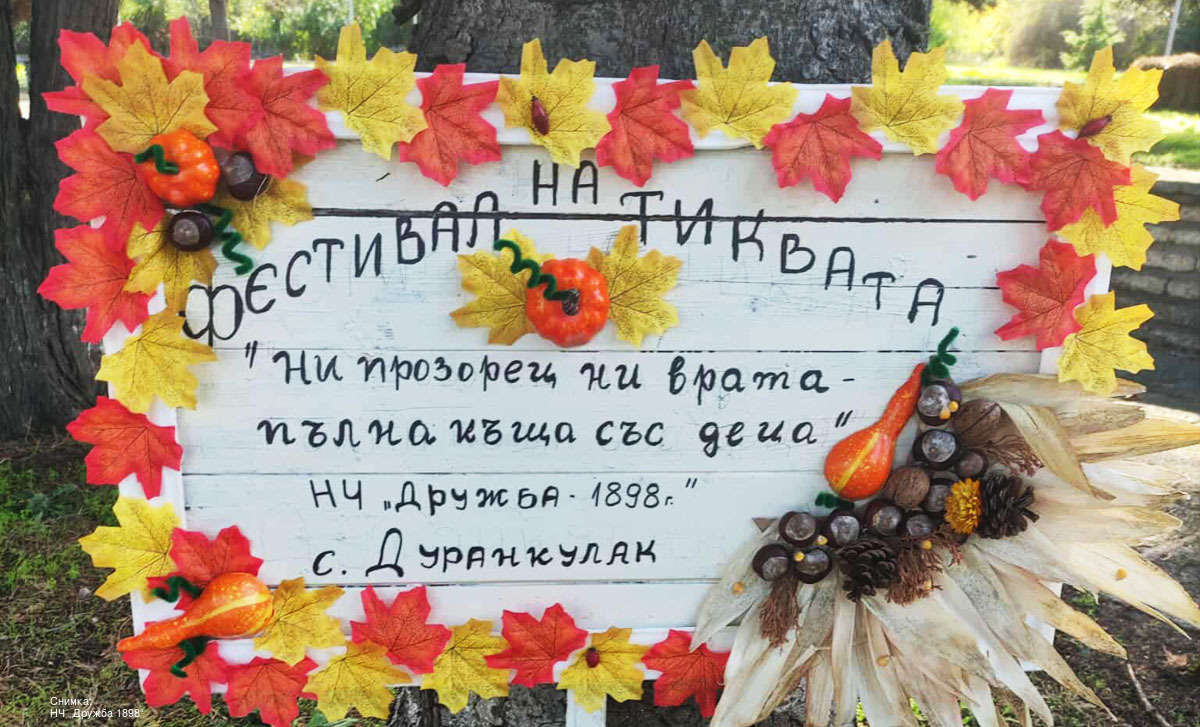 ФЕСТИВАЛ НА ТИКВАТА
"Ни прозорец ни врата -
пълна къща със деца"
НЧ „Дружба - 1898г."
с. Дуранкулак
Снимка:
НЧ "Дружба 1898"